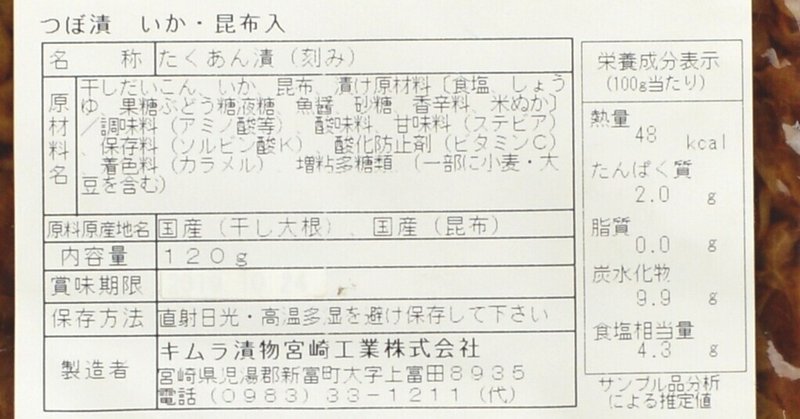 つぼ漬 いか・昆布入
名称 たくあん漬（刻み）
原材料名
干しだいこん、いか、昆布、漬け原材料〔食塩 しょう
ゆ、果糖ぶどう糖液糖 魚醤、砂糖、香辛料、米ぬか〕
／調味料（アミノ酸等） 酸味料 甘味料（ステビア）
保存料（ソルビン酸K） 酸化防止剤（ビタミンC）
着色料（カラメル） 増粘多糖類 （一部に小麦・大
豆を含む）
原料原産地名 国産（干し大根）、国産（昆布）
内容量 120g
賞味期限
保存方法 直射日光・高温多湿を避け保存して下さい
製造者
キムラ漬物宮崎工業株式会社
宮崎県児湯郡新富町大字上富田8935
電話（0983）33-1211（代）
栄養成分表示
(100g当たり)
熱量
48 kcal
たんぱく質
2.0 g
脂質
0.0 g
炭水化物
9.9 g
食塩相当量
4.3 g
サンプル品分析
による推定値